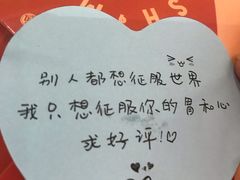 别人都想征服世界
我只想征服你的胃和心
求好评!